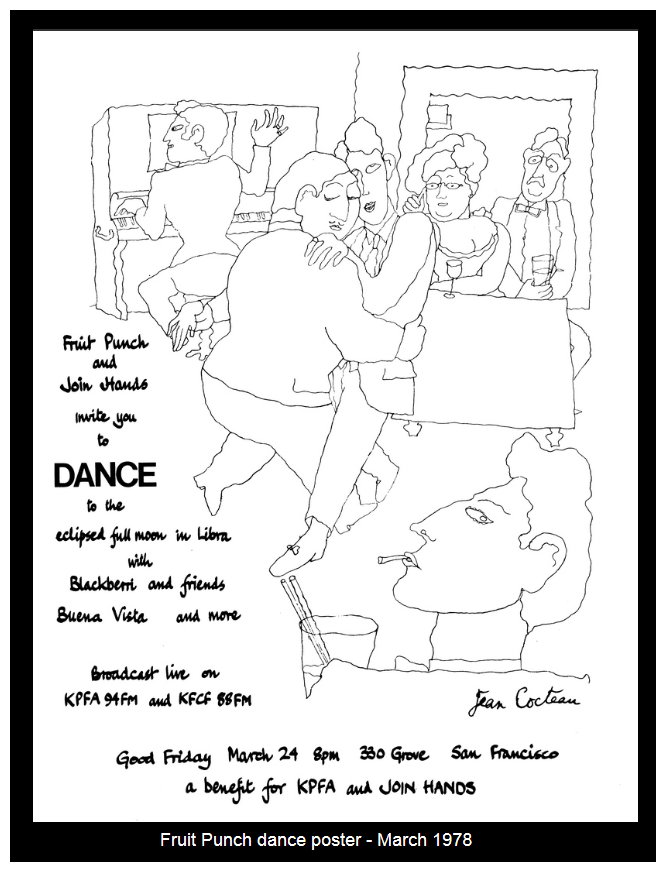 Fruit Punch
and
Join Hands
invite you
to
DANCE
to the
eclipsed full moon in Libra
with
Blackberri and friends
Buena Vista and more
Broadcast live on
KPFA 94FM and KFCF 88FM
Jean Cocteau
Good Friday March 24 8pm 330 Grove San Francisco
a benefit for KPFA and JOIN HANDS
Fruit Punch dance poster - March 1978